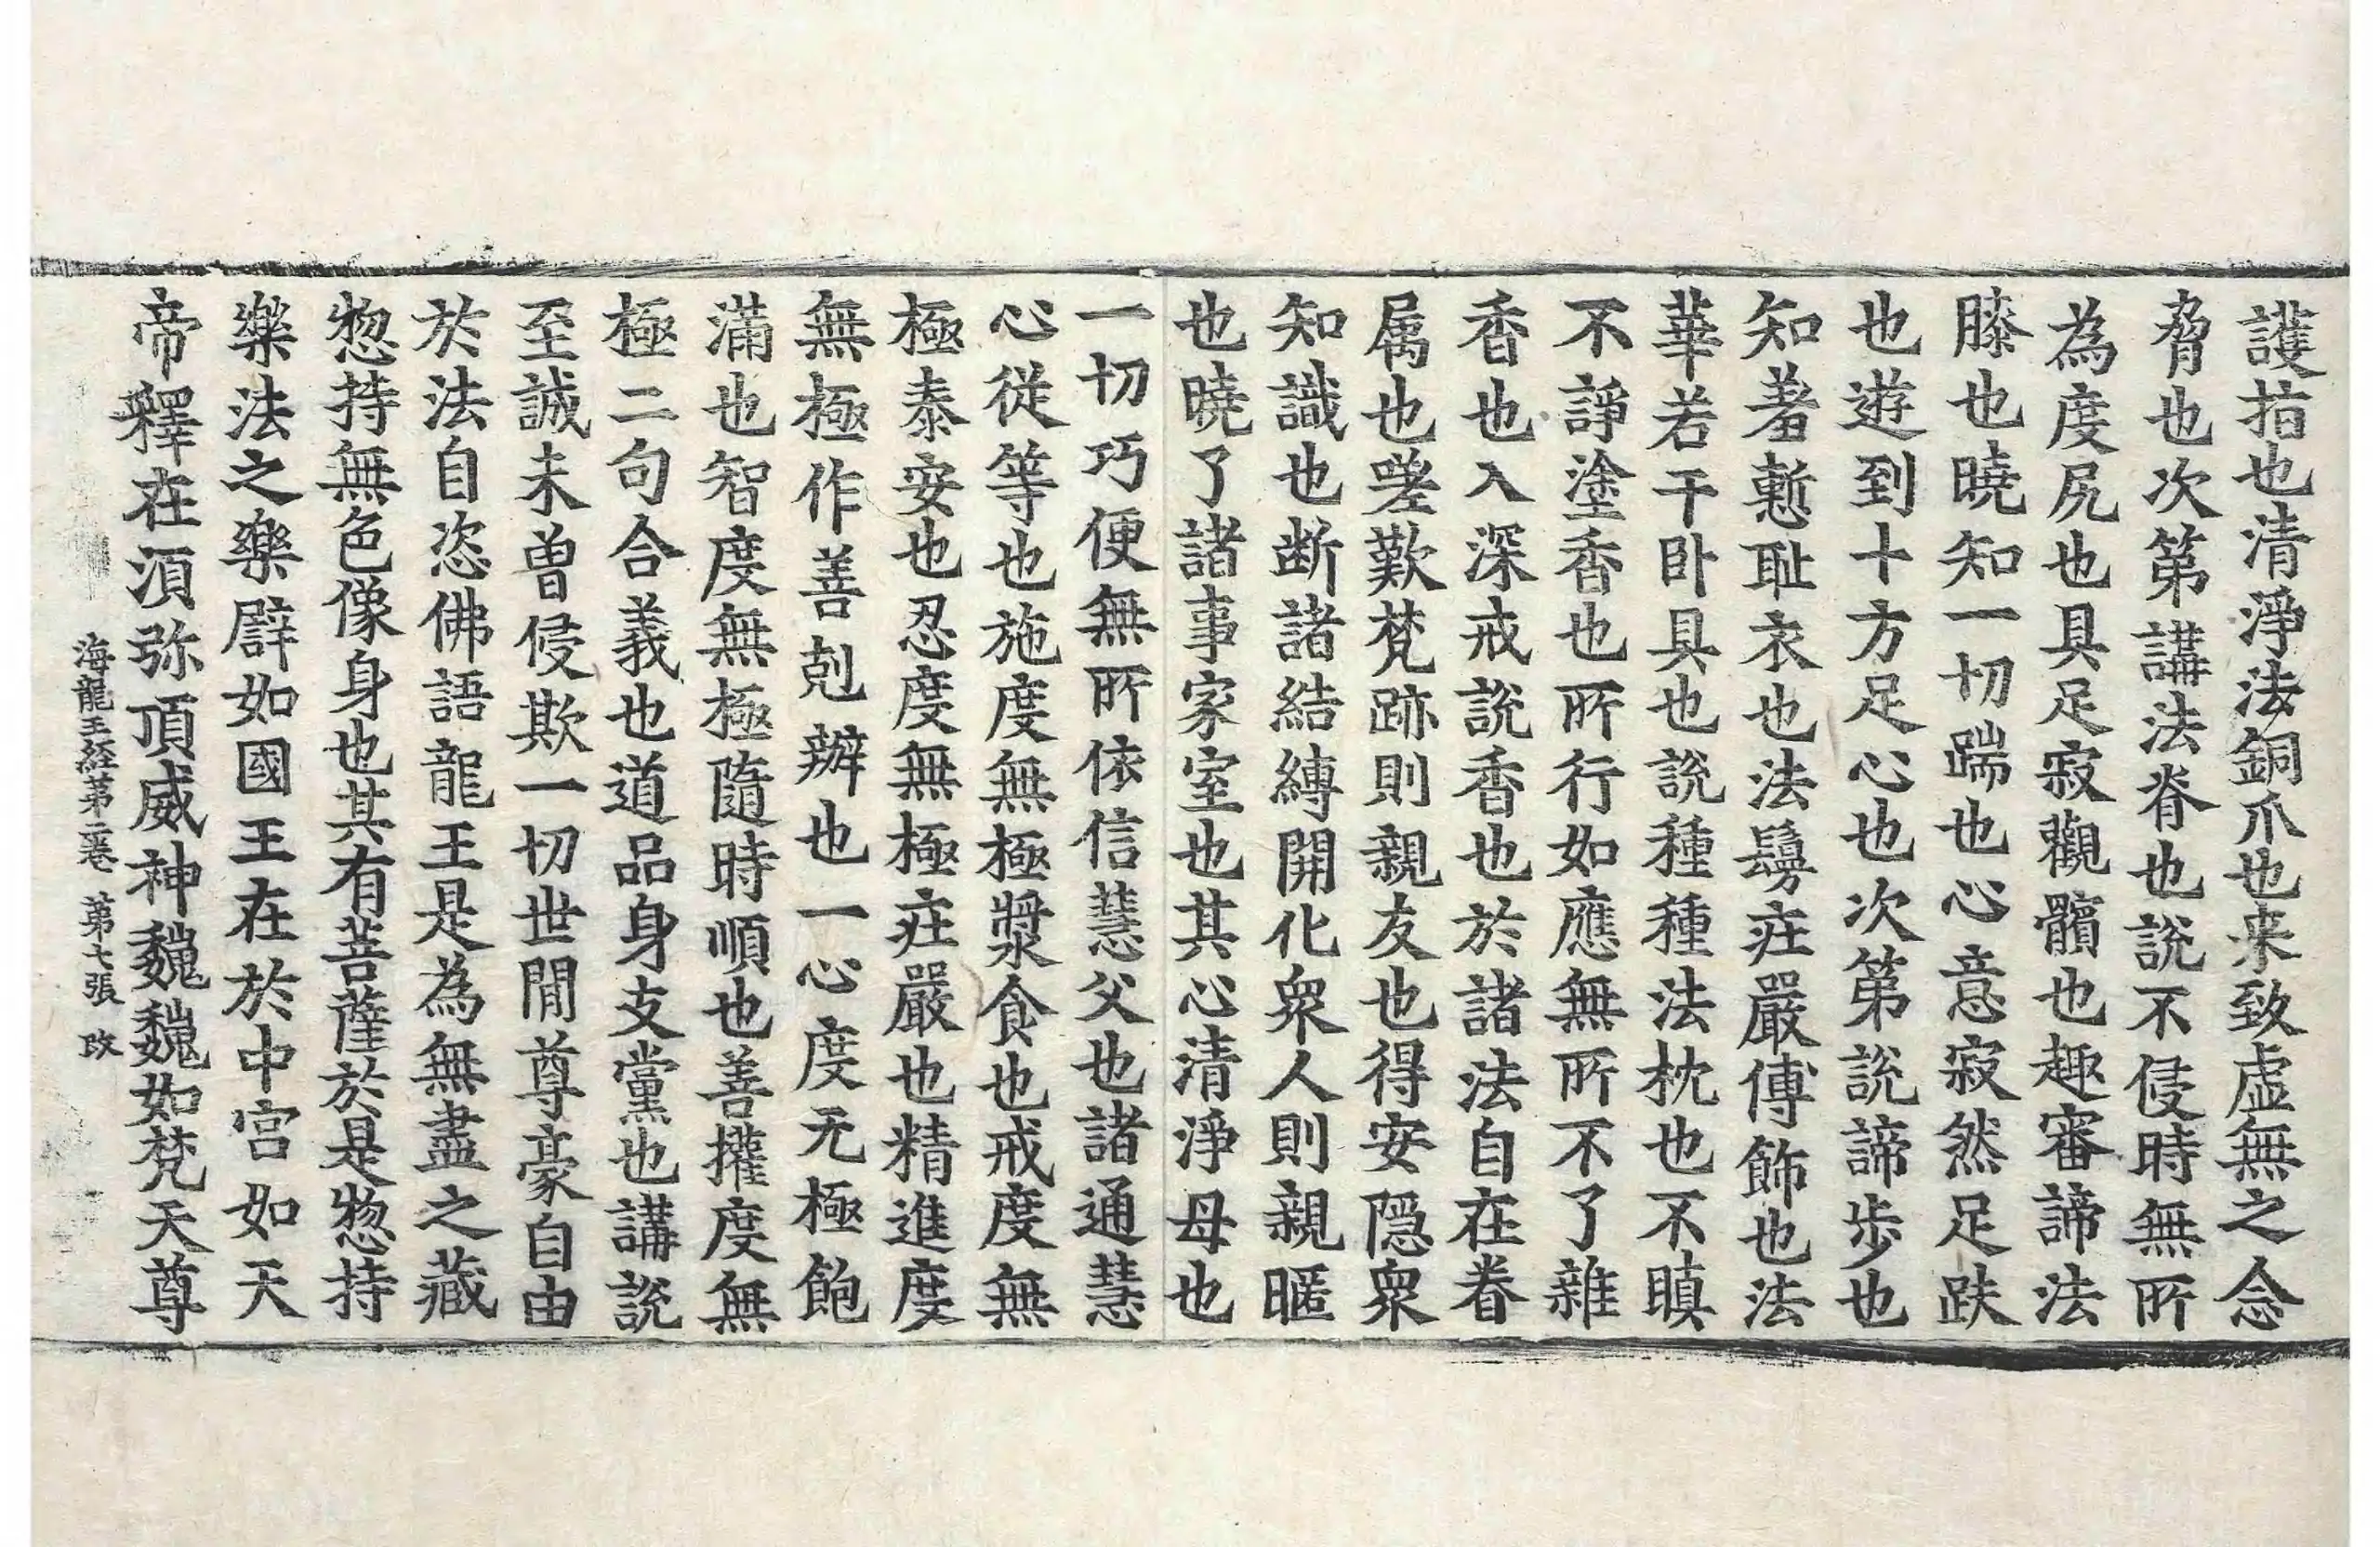 護指也清淨法銅爪也来致虛無之念
脅也次第講法脊也說不侵時無所
為度尻也具足寂觀髖也趣審諦法
膝也曉知一切踹也心意寂然足趺
也遊到十方足心也次第說諦步也
知羞慙耻衣也法鬘莊嚴傅飾也法
華若干卧具也說種種法枕也不瞋
不諍塗香也所行如應無所不了雜
香也入深戒說香也於諸法自在眷
属也嗟歎梵跡則親友也得安隱衆
知識也断諸結縛開化衆人則親暱
也曉了諸事家室也其心清淨母也
一切巧便無所依信慧父也諸通慧
心從等也施度無極漿食也戒度無
極泰安也忍度無極莊嚴也精進度
無極作善剋辦也一心度无極飽
滿也智度無極隨時順也善攉度無
極二句合義也道品身支黨也講說
至誠未曾侵欺一切世閒尊豪自由
於法自恣佛語龍王是為無盡之藏
惣持無色像身也其有菩薩於是惣持
樂法之樂譬如國王在於中宮如天
帝釋在湏弥頂威神巍巍如梵天尊
海龍王経第二卷 第七張 改